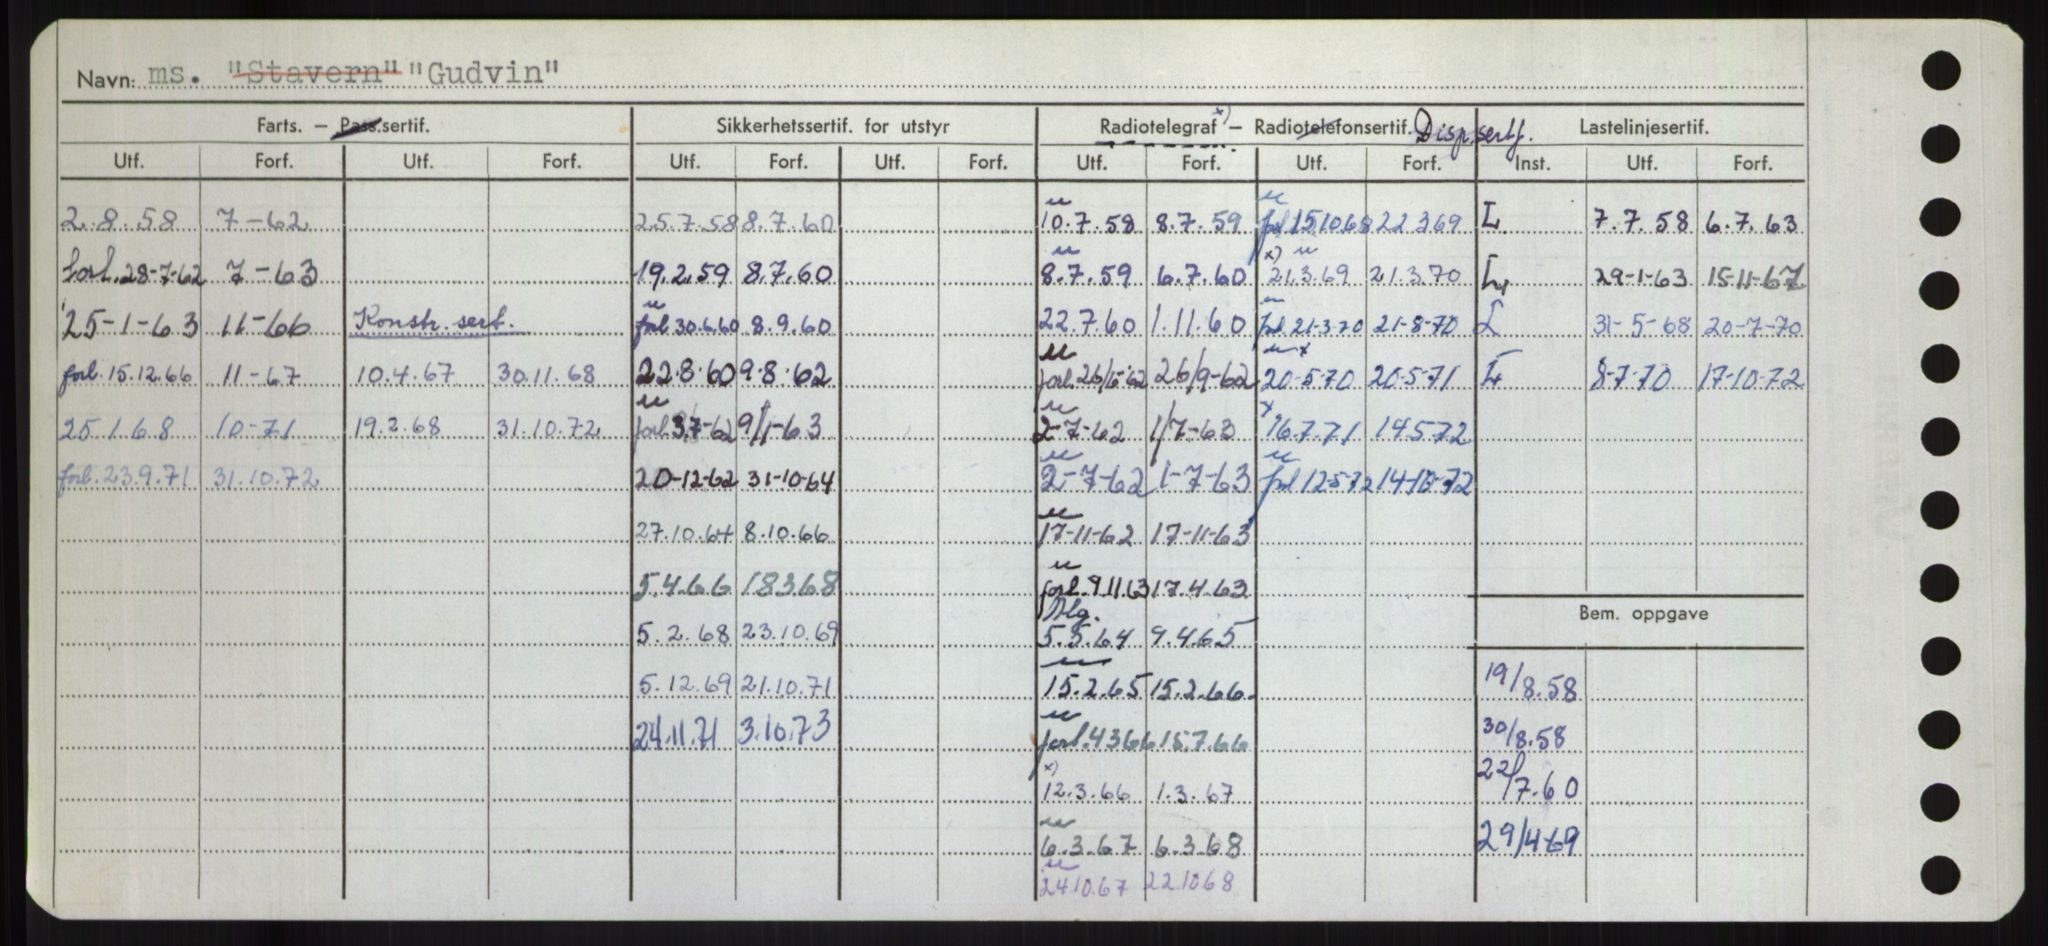 Navn: ms. "Stavern" "Gudvin"
Farts. – Pass.sertif. Sikkerhetssertif. for utstyr Radiotelegraf x) – Radiotelefonsertif. Disp.sertf. Lastelinjesertif.
Utf. Forf. Utf. Forf. Utf. Forf. Utf. Forf. Utf. Forf. Utf. Forf. Inst. Utf. Forf.
2.8.58 7-62 25.7.58 8.7.60 10.7.58 8.7.59 forl 15.10.68 22.3.69 L 7.7.58 6.7.63
forl.28-7-62 7-63 19.2.59 8.7.60 8.7.59 6.7.60 x) 21.3.69 21.3.70 L 29-1-63 15-11-67
25-1-63 11-66 Konstr. sert. forl 30.6.60 8.9.60 22.7.60 1.11.60 forl 21-3-70 21-8-70 L 31-5-68 20-7-70
forl.15.12.66 11-67 10.4.67 30.11.68 22.8.60 9.8.62 forl. 26/9-62 x 20-5-70 20-5-71 L 8-7-70 17-10-72
25.1.68 10-71 19.2.68 31.10.72 forl 3.7-62 9/1-63 2-7-62 1/7-63 x 16.7.71 14.5.72
forl.23.9.71 31.10.72 20-12-62 31-10-64 2-7-62 1-7-63 forl 12-5-72 14-10-72
27.10.64 8.10.66 17-11-62 17-11-63
5.4.66 18.3.68 forl.9.11.63 17.4.63
Dlg.
5.2.68 23.10.69 5.5.64 9.4.65
Bem. oppgave
5.12.69 21.10.71 15.2.65 15.2.66 19/8.58
24.11.71 3.10.73 forl.4.3.66 15.7.66 30/8.58
x) 12.3.66 1.3.67 22/7.60
6.3.67 6.3.68 29/4-69
24.10.67 22.10.68